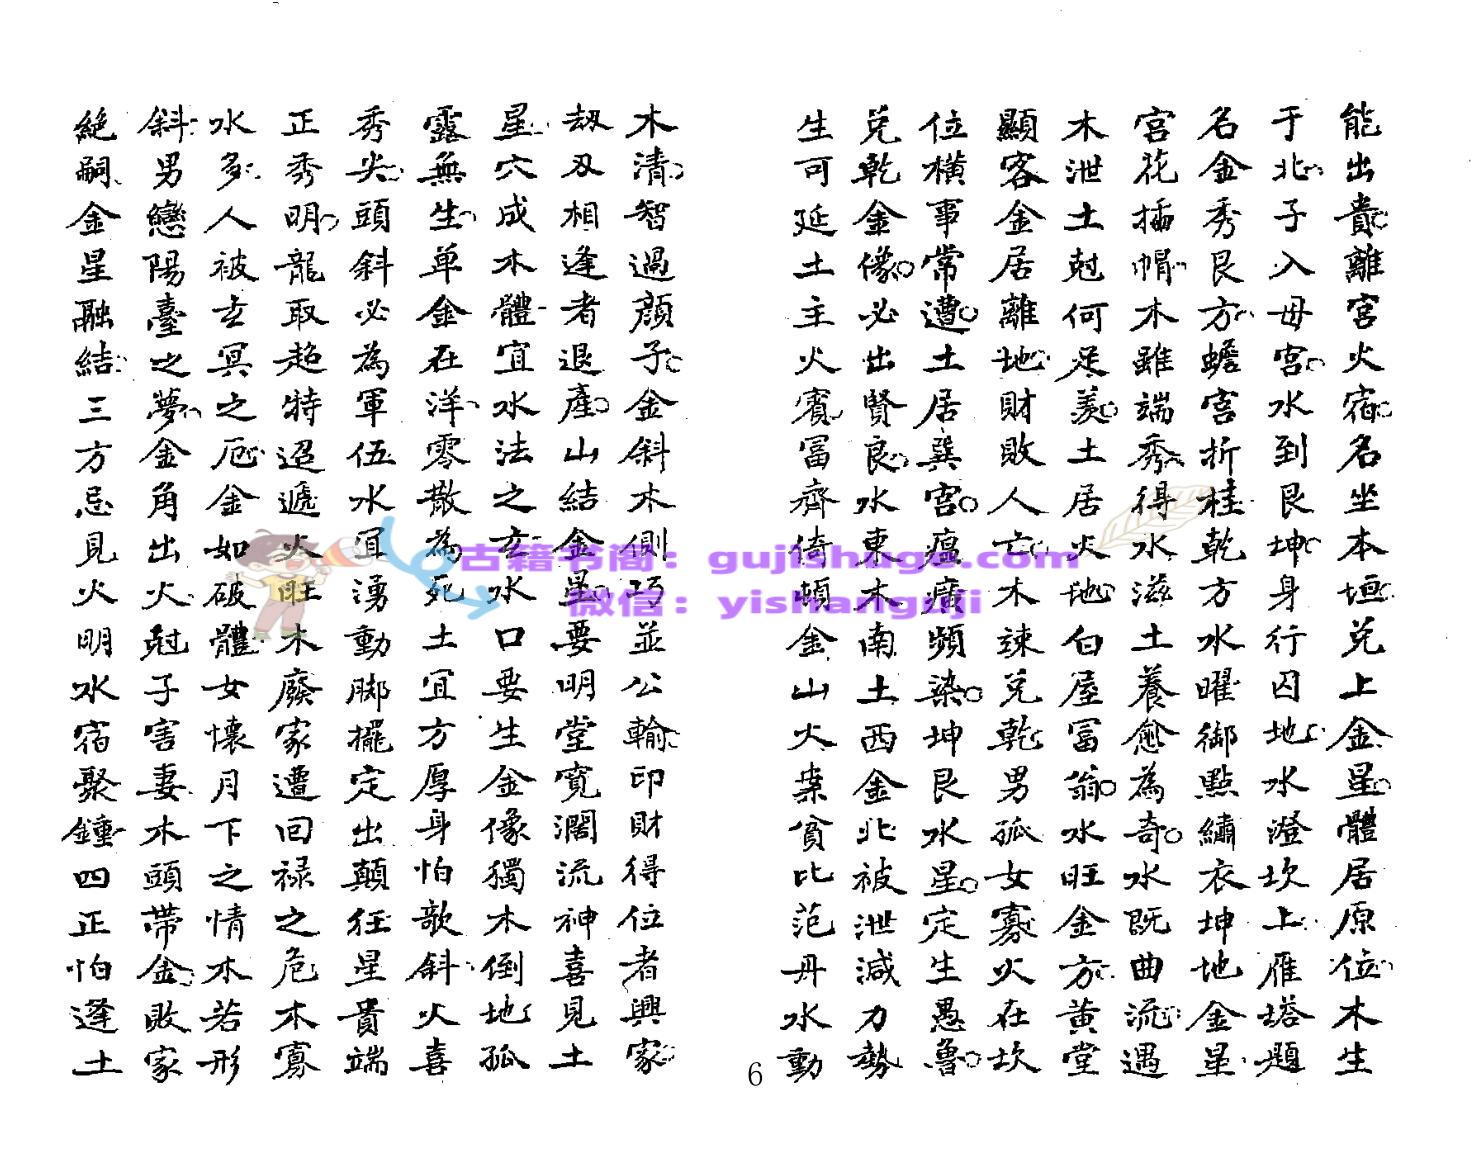 能出貴離宮火宿名坐本垣兑上金星體居原位木生
于北子入母宮水到艮坤身行囚地水澄坎上雁塔題
名金秀艮方蟾宮折桂乾方水曜御點繡衣坤地金星
宮花插帽木雖端秀得水滋土養愈為奇水既曲流遇
木泄土尅何足羨土居火地白屋冨翁水旺金方黄堂
顯客金居離地財敗人亡木竦兑乾男孤女寡火在坎
位橫事常遭土居巽宮瘟㾮頻染坤艮水星定生愚魯
兑乾金像必出賢良水東木南土西金北被泄減力勢
生可延土主火賓冨齊倚頓金山火案貧比范丹水動
木清智過顔子金斜木側巧並公輸印財得位者興家
刼刃相逢者退產山結金星要明堂寬濶流神喜見土
星穴成木體宜水法之玄水口要生金像獨木倒地孤
露無生单金在洋零散為死土宜方厚身怕欹斜火喜
秀尖頭斜必為軍伍水宜湧動脚擺定出顛狂星貴端
正秀明龍取超特迢遞火旺木廢家遭回禄之危木寡
水多人被玄冥之厄金如破體女懷月下之情木若形
斜男戀陽臺之夢金角出火尅子害妻木頭帶金敗家
絶嗣金星融結三方忌見火明水宿聚鍾四正怕逢土
6
古籍书阁：gujishuge.com
微信：yishangziji